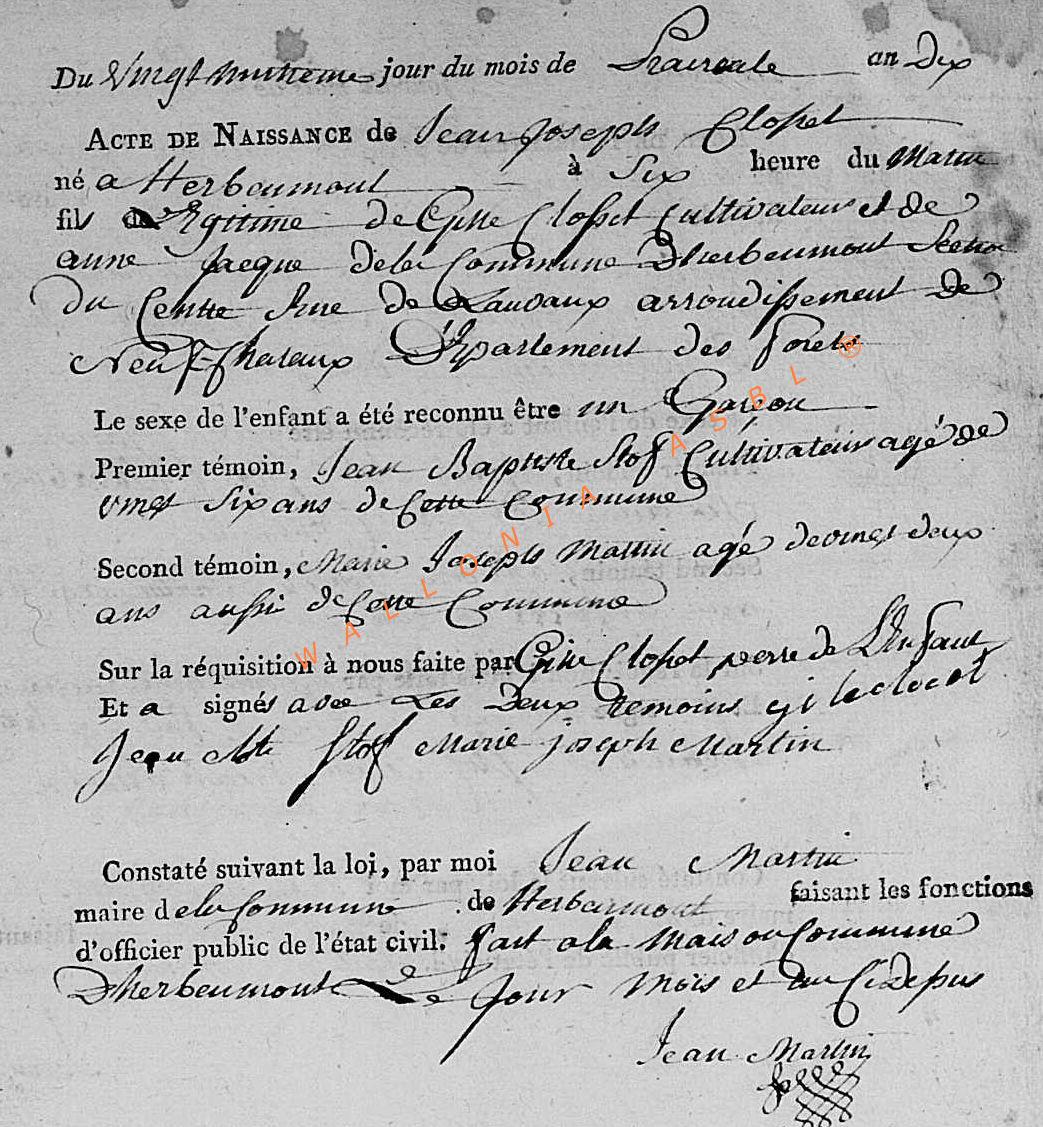 Du Vingt huitieme jour du mois de Prairiale an Dix
ACTE DE NAISSANCE de Jean Joseph Closset
né a Herbeumont à Six heure du Matin
fils Legitime de Gille Closset Cultivateur et de
anne Jacque dela Commune Dherbeumont Section
du Centre de arrondissement de
Neufchateaux Département des Forets
Le sexe de l'enfant a été reconnu être un Garcon
Premier témoin, Jean Baptiste Stof Cultivateur agé de
vingt Six ans de Cette Commune
Second témoin, Marie Joseph Martin agé de vingt deux
ans aussi de Cette Commune
Sur la réquisition à nous faite par Gille Closset perre de L'Enfant
Et a signés avec Les Deux temoins
Jean Bte Stof Marie joseph Martin
Constaté suivant la loi, par moi Jean Martin
maire dela Commune de Herbeumont faisant les fonctions
d'officier public de l'état civil. fait ala Maison Commune
Dherbeumont Le Jour Mois et an Cidessus
Jean Martin
WALLONIA ASBL ®